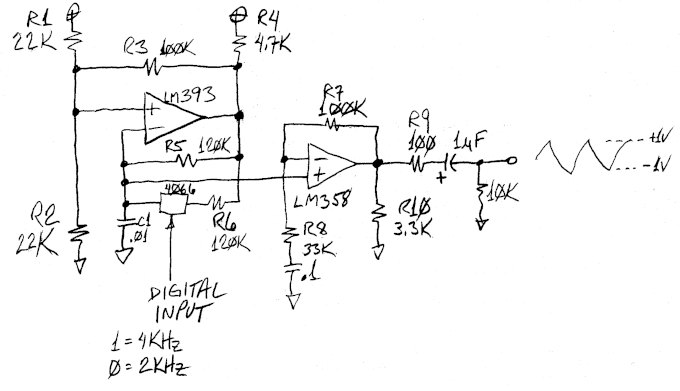 R1
22K
R4
4.7K
R3 100K
LM393
+
−
R5 120K
4066
R6
120K
C1
.01
R2
22K
R7
100K
−
+
LM358
R8
33K
.1
R9
100
1uF
+
R10
3.3K
10K
+1V
-1V
DIGITAL
INPUT
1 = 4KHz
0 = 2KHz